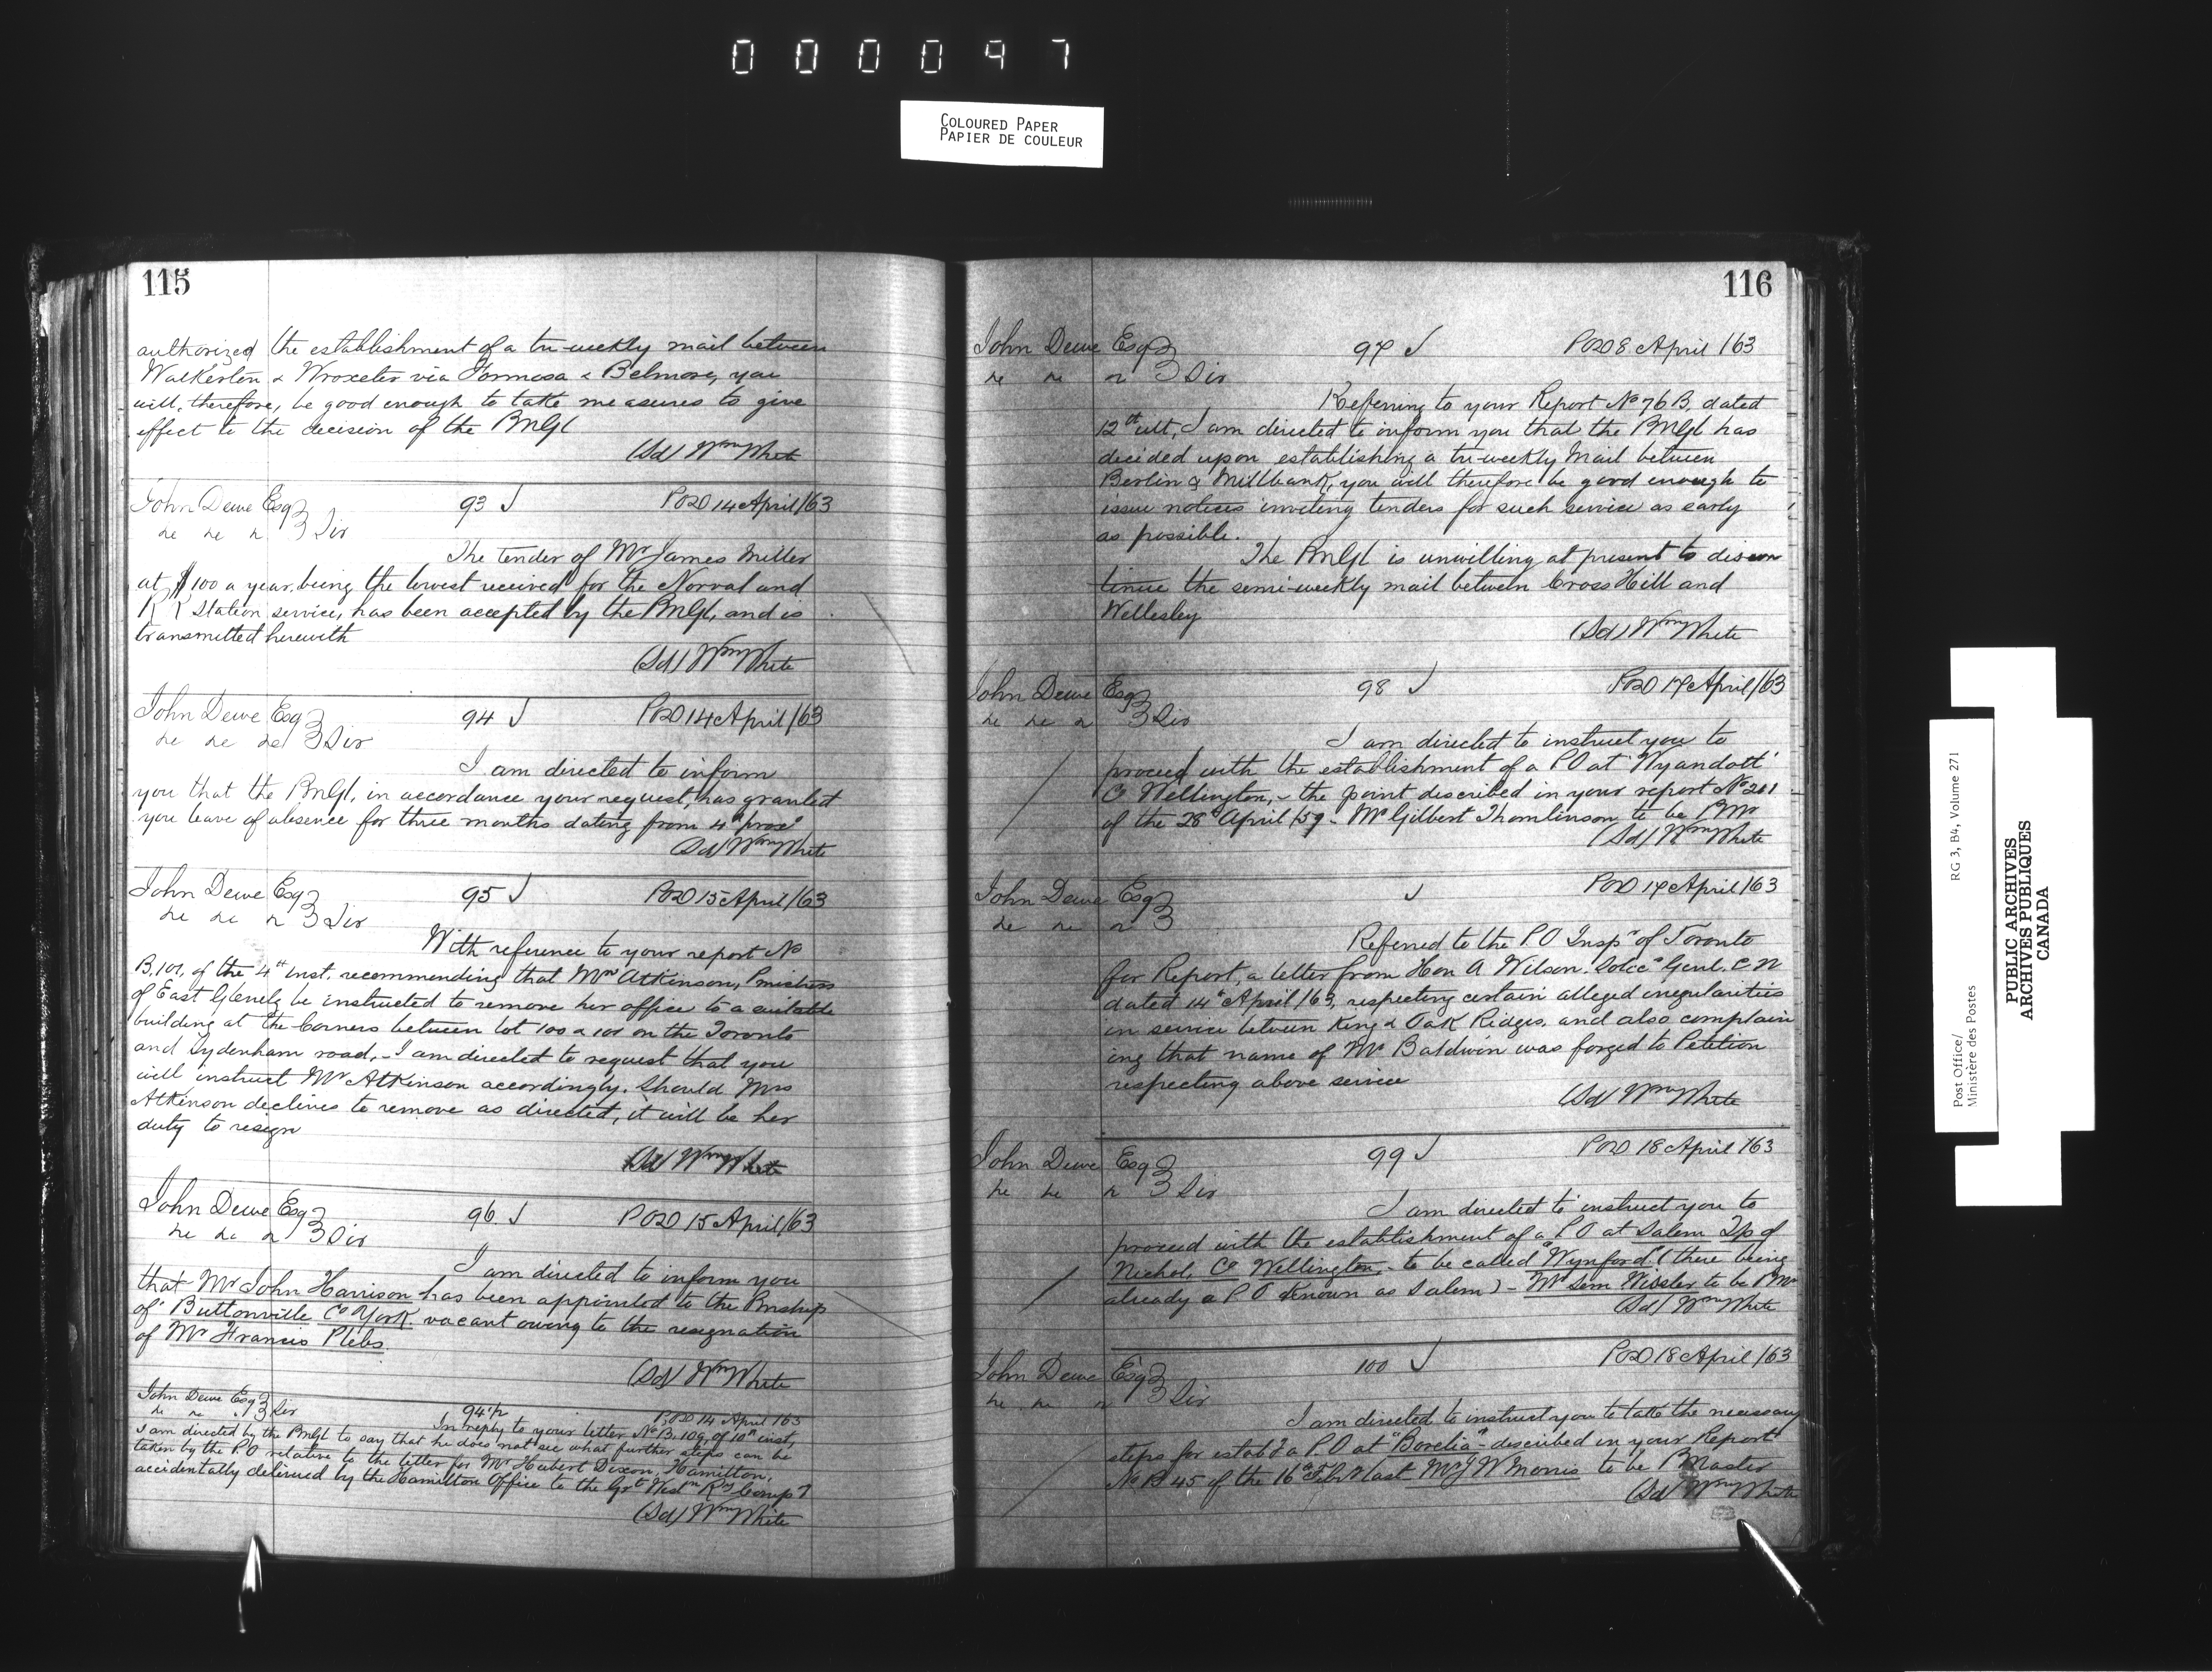 000097
COLOURED PAPER
PAPIER DE COULEUR
115
authorized the establishment of a tri-weekly mail between
Walkerton & Wroxeter via Formosa & Belmore, you
will, therefore, be good enough to take measures to give
effect to the decision of the PMGl
(Sd) Wm White
John Dewe Esq
93 POD 14 April /63
3 Sir
The tender of Mr James Miller
at $100 a year, being the lowest received for the Norval and
R R Station service, has been accepted by the PMGl, and is
transmitted herewith
(Sd) Wm White
John Dewe Esq
94 POD 14 April /63
3 Sir
I am directed to inform
you that the PMGl, in accordance your request, has granted
you leave of absence for three months dating from 4th proxo
(Sd) Wm White
John Dewe Esq
95 POD 15 April /63
3 Sir
With reference to your report No
B.101, of the 4th inst. recommending that Mrs Atkinson, Pmistress
of East Glenelg be instructed to remove her office to a suitable
building at the Corners between lot 100 & 101 on the Toronto
and Sydenham road, - I am directed to request that you
will instruct Mrs Atkinson accordingly. Should Mrs
Atkinson declines to remove as directed, it will be her
duty to resign
(Sd) Wm White
John Dewe Esq
96 POD 15 April /63
3 Sir
I am directed to inform you
that Mr John Harrison has been appointed to the Pmship
of Buttonville Co York, vacant owing to the resignation
of Mr Francis Plebs
(Sd) Wm White
John Dewe Esq
94½ POD 14 April 163
3 Sir
In reply to your letter No B.109, of 10th inst,
I am directed by the PMGl to say that he does not see what further steps can be
taken by the PO relative to the letter for Mr Hubert Dixon, Hamilton,
accidentally delivered by the Hamilton Office to the Grt Westn Ry Comp?
(Sd) Wm White
116
John Dewe Esq
97 POD 8 April /63
3 Sir
Referring to your Report No 76 B, dated
12th ult, I am directed to inform you that the PMGl has
decided upon establishing a tri-weekly Mail between
Berlin & Millbank, you will therefore be good enough to
issue notices inviting tenders for such service as early
as possible.
The PMGl is unwilling at present to discon
tinue the semi-weekly mail between Cross Hill and
Wellesley
(Sd) Wm White
John Dewe Esq
98 POD 17 April /63
3 Sir
I am directed to instruct you to
proceed with the establishment of a PO at "Wyandott"
Co Wellington, - the point described in your report No 201
of the 28th April /59 - Mr Gilbert Thomlinson to be PMr
(Sd) Wm White
John Dewe Esq
POD 17 April /63
3
Referred to the PO Inspr of Toronto
for Report, a letter from Hon A Wilson, Solicr Genl. C W
dated 14th April /63, respecting certain alleged irregularities
in service between King & Oak Ridges, and also complain
ing that name of Mr Baldwin was forged to Petition
respecting above service
(Sd) Wm White
John Dewe Esq
99 POD 18 April /63
3 Sir
I am directed to instruct you to
proceed with the establishment of a PO at Salem Tp of
Nichol, Co Wellington, - to be called "Wynford" (there being
already a PO known as Salem) - Mr Sem Wissler to be PMr
(Sd) Wm White
John Dewe Esq
100 POD 18 April /63
3 Sir
I am directed to instruct you to take the necessary
steps for establ? a P.O at "Borelia" - described in your Report
No B 45 of the 16th Feby last Mr J W Morris to be PMaster
(Sd) Wm White
Post Office/
Ministère des Postes
RG 3, B4, Volume 271
PUBLIC ARCHIVES
ARCHIVES PUBLIQUES
CANADA